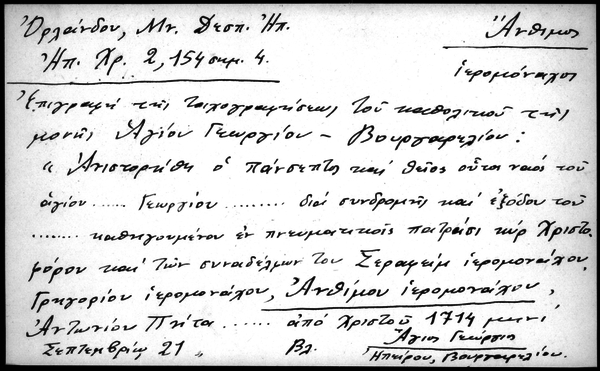 Ὀρλάνδου, Μν. Δεσπ. Ἠπ.
Ἠπ. Χρ. 2, 154 σημ. 4.
Ἄνθιμος
ἱερομόναχος
Ἐπιγραφή τῆς τοιχογραφήσεως τοῦ καθολικοῦ τῆς
μονῆς Ἁγίου Γεωργίου – Βουργαρελίου :
« Ἀνιστορήθη ὁ πάνσεπτος καί θεῖος οὗτος ναός τοῦ
ἁγίου ...... Γεωργίου ........ διά συνδρομῆς καί ἐξόδου τοῦ
........ καθηγουμένου ἐν πνευματικοῖς πατράσι κύρ Χριστο
φόρου καί τῶν συναδέλφων του Σεραφείμ ἱερομονάχου,
Γρηγορίου ἱερομονάχου, Ἀνθίμου ἱερομονάχου,
Ἀντωνίου Πνίτα ...... ἀπό Χριστοῦ 1714 μηνί
Σεπτεμβρίῳ 21 „ Βλ. Ἅγιος Γεώργιος
Ἠπείρου, Βουργαρελίου.